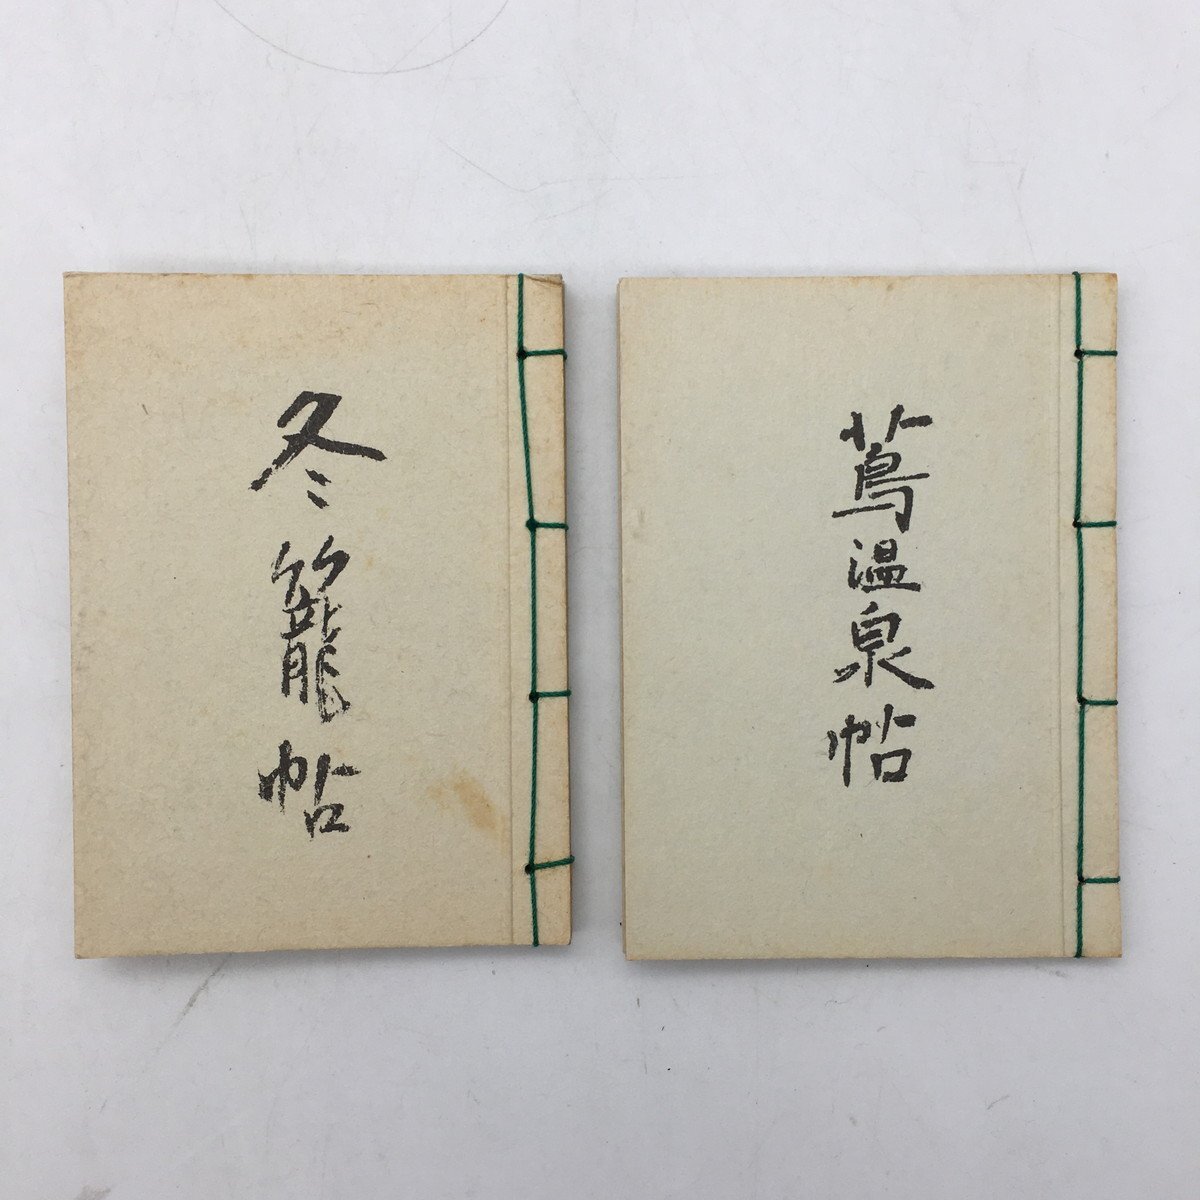 冬籠帖
蔦温泉帖